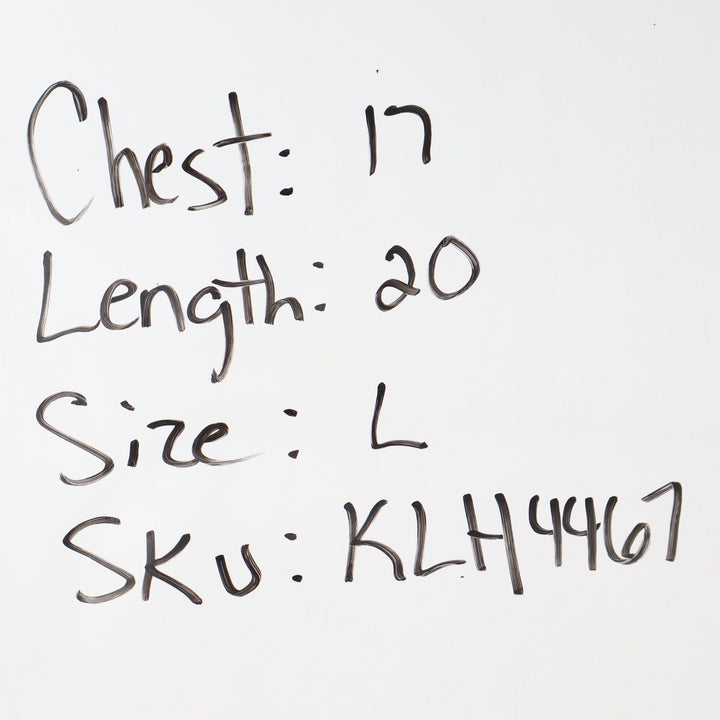 Chest: 17
Length: 20
Size: L
SKU: KLH4467